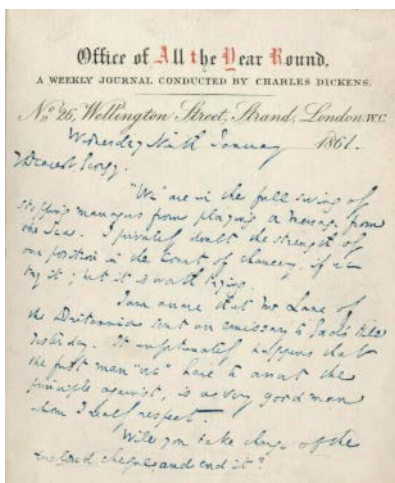 Office of All the Year Round,
A WEEKLY JOURNAL CONDUCTED BY CHARLES DICKENS.
No. 26, Wellington Street, Strand, London. W.C.
Wednesday Ninth January 1861.
Dearest Georgy.
"We" are in the full swing of
stopping managers from playing A message from
the Sea. I privately doubt the strength of
our position in the Court of Chancery, if we
try it; but it is worth trying.
I am aware that Mr Lane of
the Britannia sent an emissary to Gad's Hill
yesterday. It unfortunately happens that
the first man "we" have to assert the
principle against, is a very good man
whom I really respect.
Will you take charge of the
enclosed cheque, and send it?